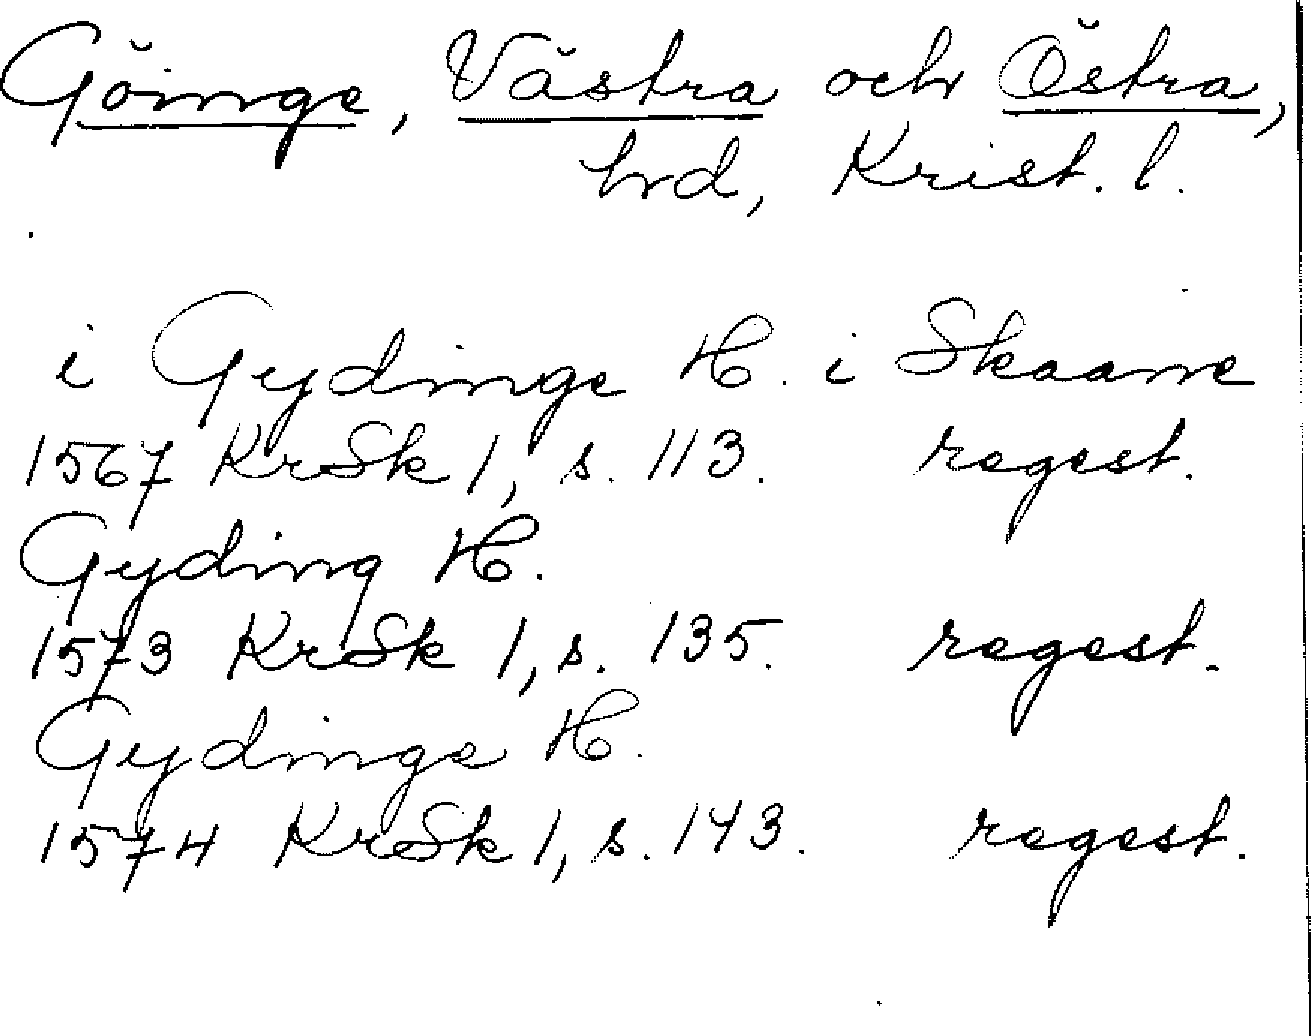 Göinge, Västra och Östra,
hrd, Krist. l.
i Gydinge H. i Skaane
1567 KrSk 1, s. 113. regest.
Gyding H.
1573 KrSk 1, s. 135. regest.
Gydinge H.
1574 KrSk 1, s. 143. regest.